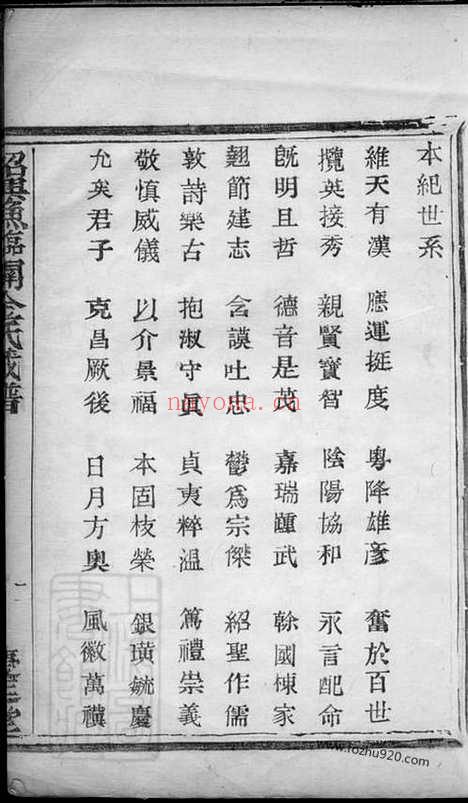 本紀世系
維天有漢 應運挺度 粵降雄彥 奮於百世
攬英接秀 親賢寶智 陰陽協和 永言配命
既明且哲 德音是茂 嘉瑞踵武 榦國棟家
翹節建志 含謨吐忠 鬱爲宗傑 紹聖作儒
敦詩樂古 抱淑守眞 貞夷粹溫 篤禮崇義
敬慎威儀 以介景福 本固枝榮 銀璜毓慶
允矣君子 克昌厥後 日月方奧 風徽萬禩
紹興漁臨關金氏宗譜
一
nayona.cn
www.fozhu920.com